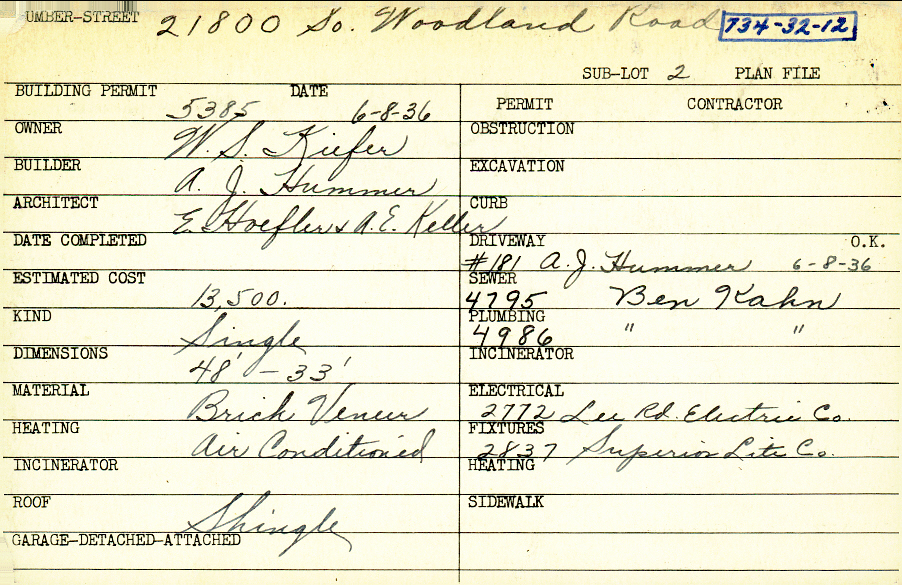 UMBER-STREET 21800 So. Woodland Road 734-32-12
SUB-LOT 2 PLAN FILE
BUILDING PERMIT 5385 DATE 6-8-36
OWNER W. S. Kiefer
BUILDER A. J. Hummer
ARCHITECT E. Hoefler & A.E. Keller
DATE COMPLETED
ESTIMATED COST 13,500.
KIND Single
DIMENSIONS 48' - 33'
MATERIAL Brick Veneer
HEATING Air Conditioned
INCINERATOR
ROOF Shingle
GARAGE-DETACHED-ATTACHED
PERMIT CONTRACTOR
OBSTRUCTION
EXCAVATION
CURB
DRIVEWAY O.K.
#181 A. J. Hummer 6-8-36
SEWER
4795 Ben Kahn
PLUMBING
4986 " "
INCINERATOR
ELECTRICAL
2772 Lee Rd. Electric Co.
FIXTURES
2837 Superior Lite Co.
HEATING
SIDEWALK